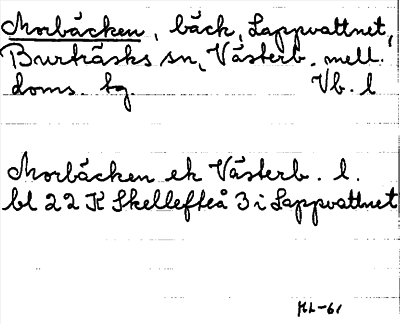 Morbäcken, bäck, Lappvattnet,
Burträsks sn, Västerb. mell.
doms. hg. Vb. l
Morbäcken ek Västerb. l.
bl 22 K Skellefteå 3 i Lappvattnet
HL-61